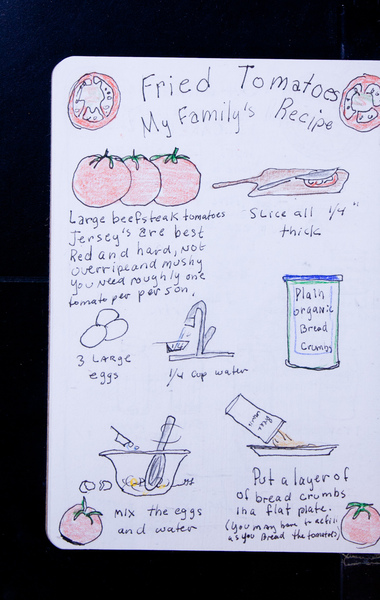 Fried Tomatoes
My Family's Recipe
Large beefsteak tomatoes
Jersey's are best
Red and hard, not
overripe and mushy
you need roughly one
tomato per person.
Slice all 1/4"
thick
3 Large
eggs
1/4 cup water
Plain
organic
Bread
Crumbs
mix the eggs
and water
Put a layer of
of bread crumbs
in a flat plate.
(you may have to refill
as you Bread the tomatoes)